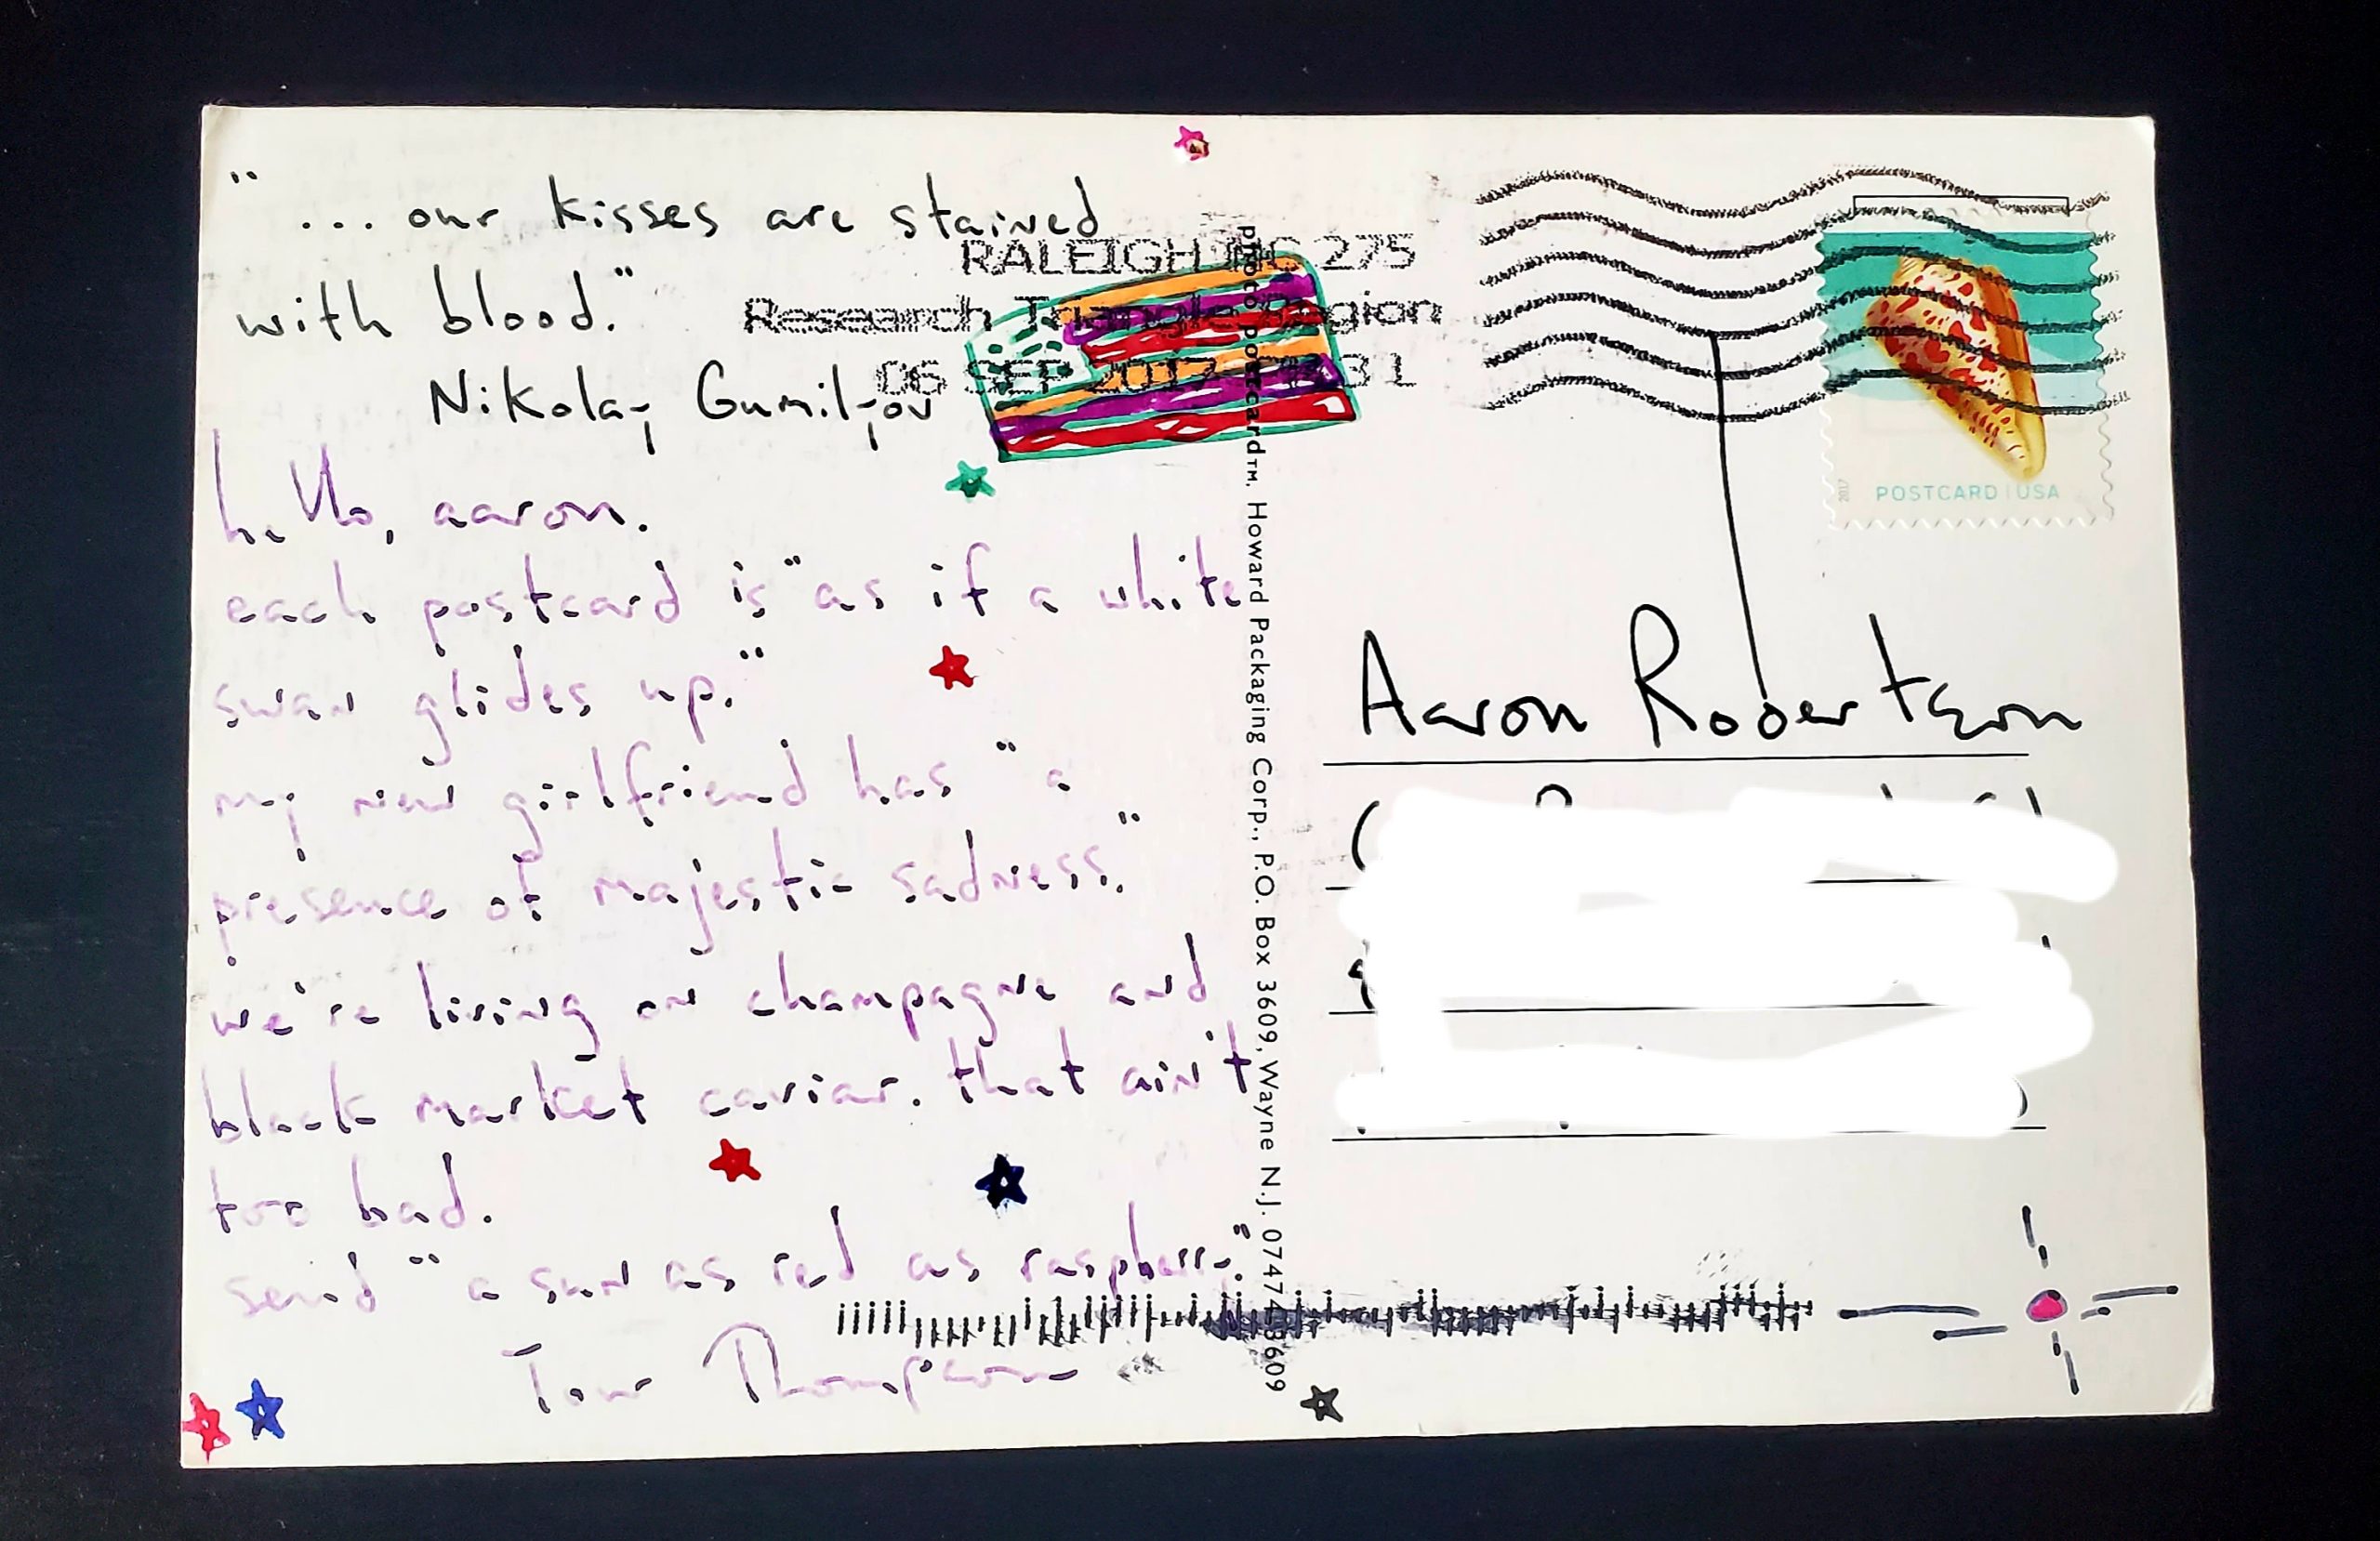 "... our kisses are stained
with blood."
Nikolay Gumilyov
hello, aaron.
each postcard is "as if a white
swan glides up."
my new girlfriend has "a
presence of majestic sadness."
we're living on champagne and
black market caviar. that ain't
too bad.
send "a sun as red as raspberry."
Tom Thompson
RALEIGH NC 275
Research Triangle Region
06 SEP 2017
photo postcard™. Howard Packaging Corp., P.O. Box 3609, Wayne N.J. 07474-3609
2017
POSTCARD | USA
Aaron Robertson